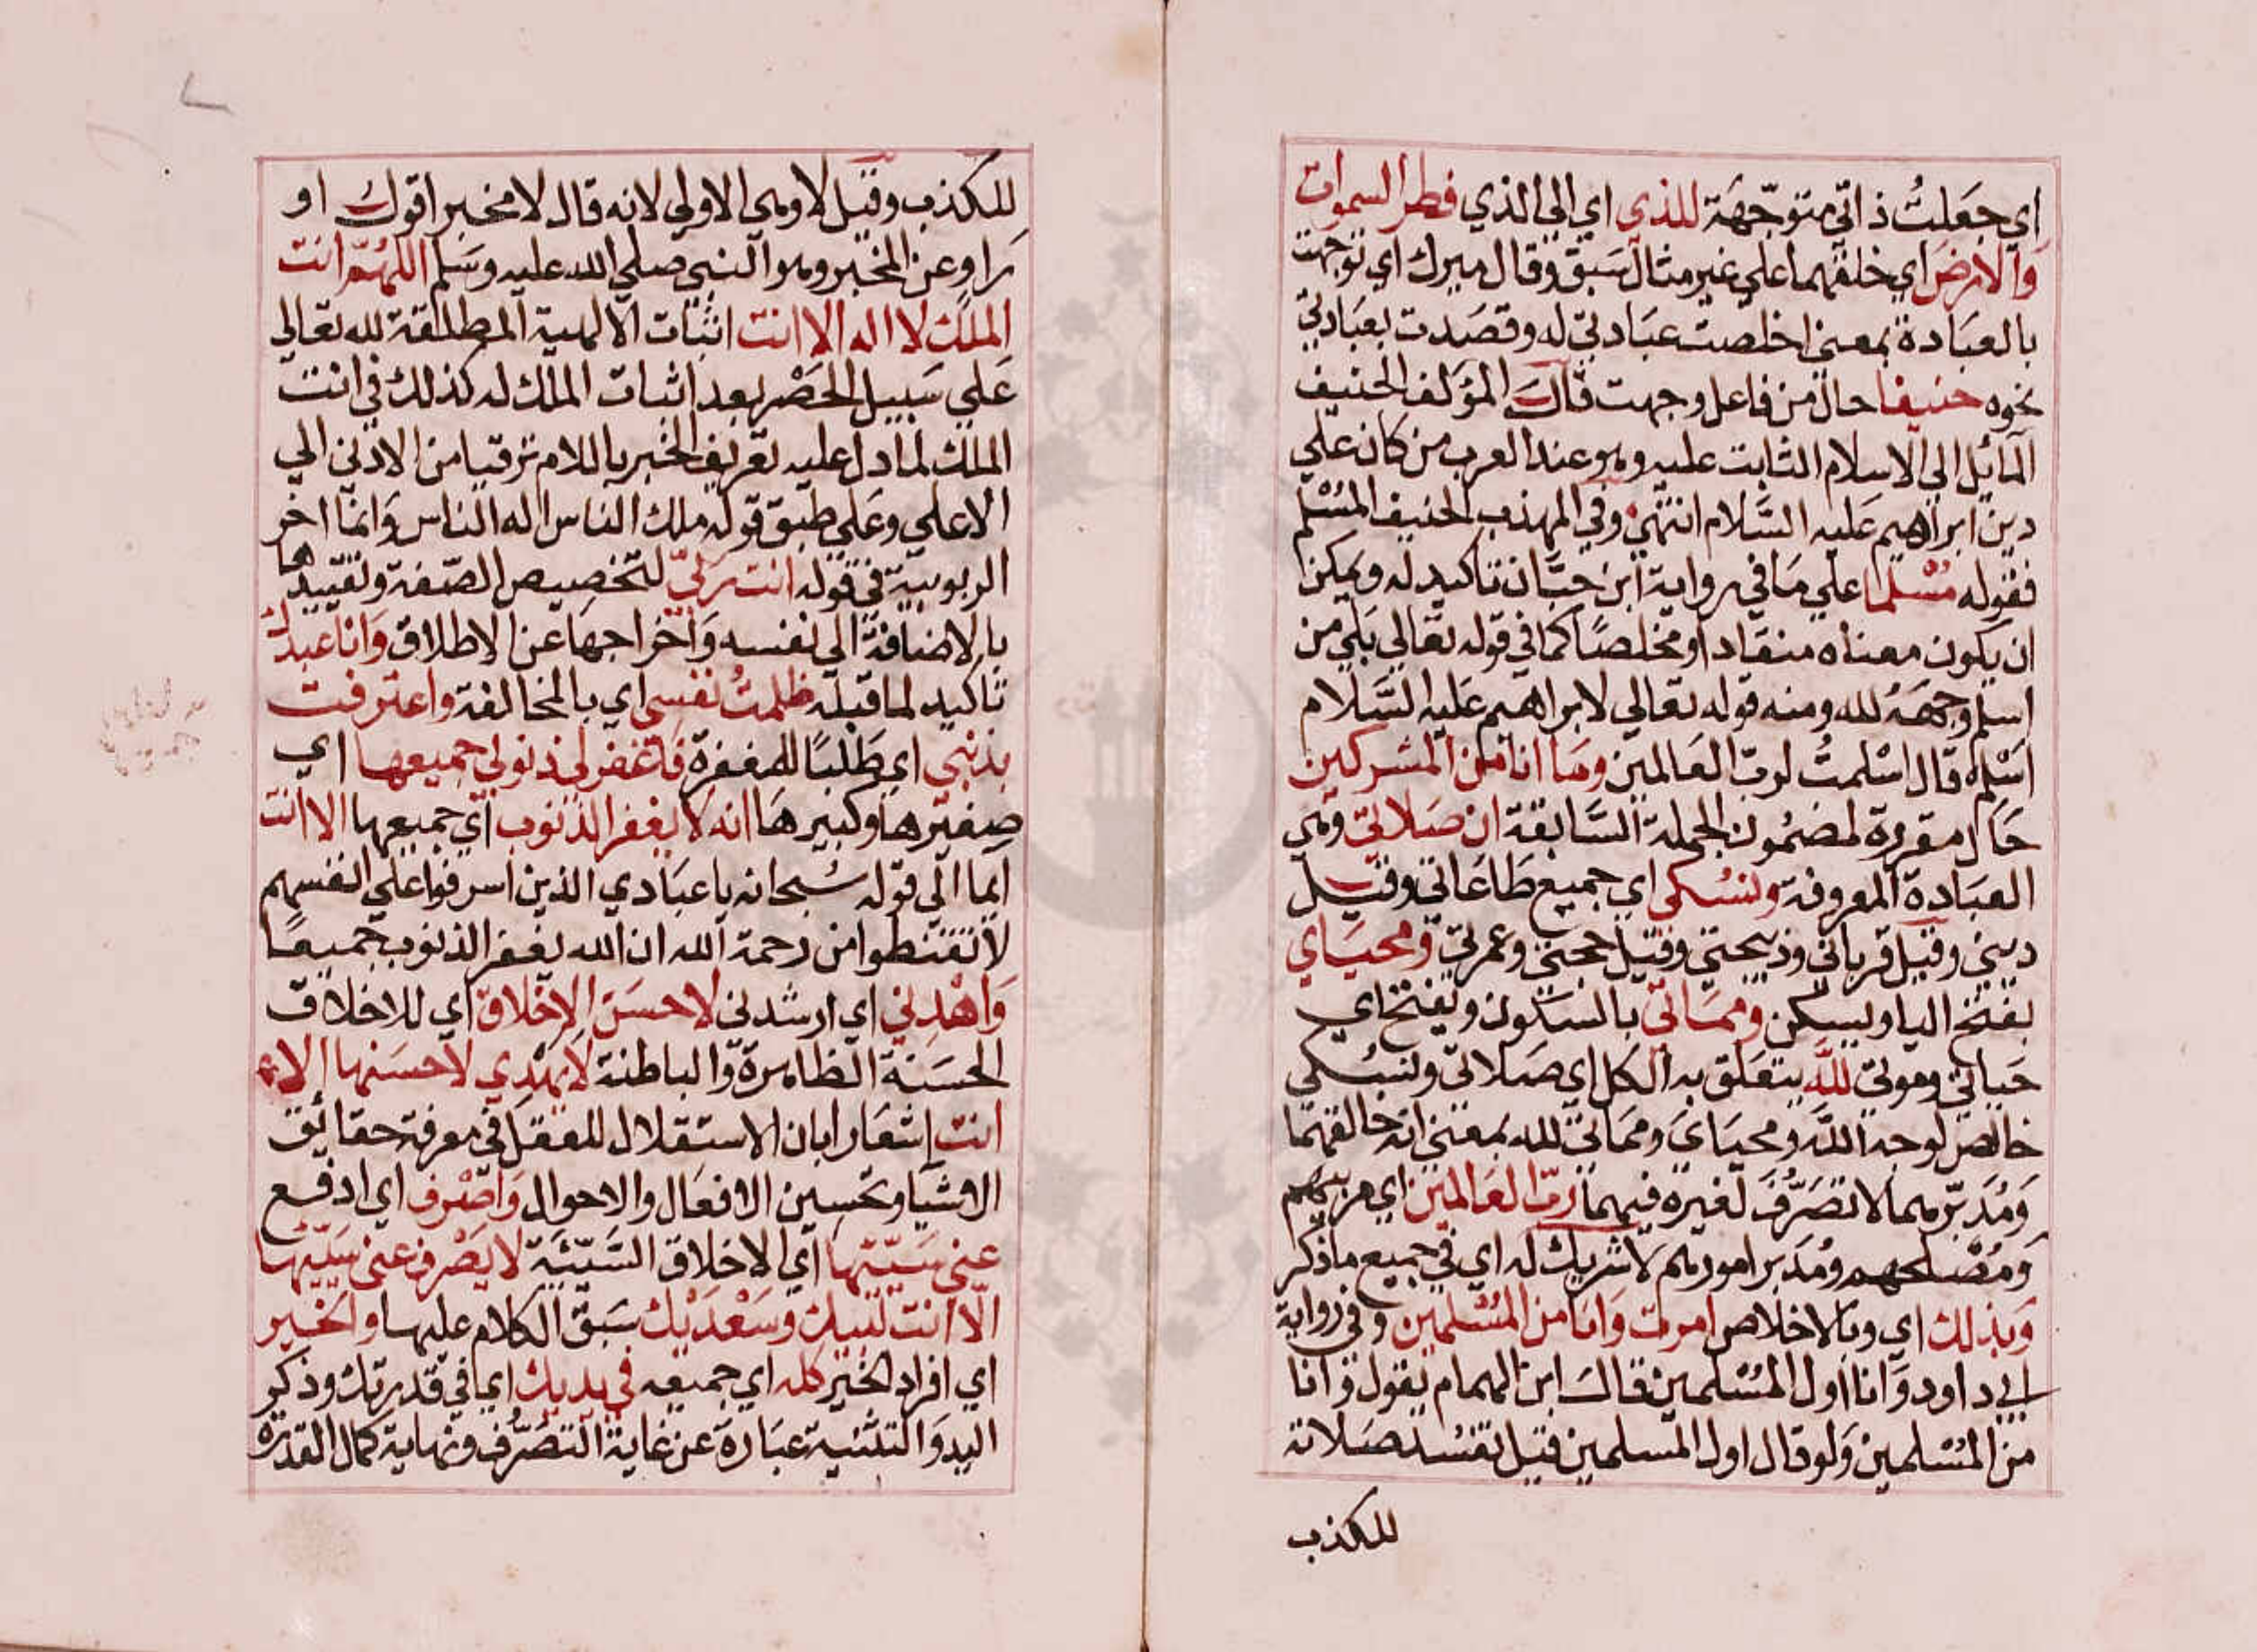 اي جَعَلتُ ذاتي متوجّهة للذي اي الي الذي فطر السموات
وَالارضَ اي خلقهما علي غير مثال سَبق وقال ميرك اي توجهت
بالعبَادة بمعني اخلصت عبَادتي له وقصَدت بعبَادتي
نحوه حنيفا حال من فاعل وجهت قال المؤلف الحنيف
المآيل الي الاسلام الثابت عليه وهو عند العرب من كان علي
دين ابراهيم عَليه السَّلام انتهي وفي المهذب الحنيف المُسْلم
فقوله مُسْلما علي مَا في رواية ابن حبَّان تاكيد له ويمكن
ان يكون معناه منقادا او مخلصًا كما في قوله تعَالي بَلي من
اسلم وجهَهُ لله ومنه قوله تعالي لابراهيم عَليه السَّلام
اسْلم قال اسْلمتُ لربّ العَالمين ومَا انا من المشركين
حَال مقررة لمضمُون الجملة السَّابقة ان صَلاتي وهي
العبَادة المعروفة ونسُكي اي جميع طَاعَاتي وقيل
ديني وقيل قرباني وذبيحتي وقيل حجتي وعمرتي ومحيَاي
بفتح اليا ويسكن وممَاتي بالسَكون ويفتح اي
حَياتي وموتي للَّه يتعَلق به الكل اي صَلاتي ونسُكي
خالص لوجه اللَّه ومحيَايَ وممَاتي لله بمعني انه خالقهما
وَمُدَبّرهما لا تصَرُّفَ لغيره فيهما رَبّ العَالمين اي مربيهم
وَمُصْلحهم ومُدَبر امورهم لا شريك له اي في جميع ما ذكر
وَبذلك اي وبالاخلاص امرت وَانا من المُسْلمين وفي رواية
ابي داود وَانا اول المُسْلمين قال ابن الهمام يقول وَانا
من المُسْلمين وَلو قال اول المسلمين قيل تفسُد صَلاته
للكذب
للكذب وقيل لا وهي الاولي لانه قال لا مخبر اقول او
رَاو عن المخبر وهو النبي صلي الله عليه وسَلم اللهُمّ انت
الملك لا اله الا انت اثبَات الالهية المطلقة لله تعَالي
عَلي سَبيل الحَصْر بعد اثبات الملك له كذلك في انت
الملك لما دل عليه تعريف الخبر باللام ترقيا من الادني الي
الاعلي وعَلي طبق قوله ملك الناس اله الناس وَانما اخر
الربوبية في قوله انت ربّي لتخصيص الصّفة وتقييدها
بالاضافة الي نفسه وَاخراجهَا عن الاطلاق وَانا عبدكَ
تاكيد لما قبله ظلمتُ نفسي اي بالمخالفة واعترفت
بذنبي اي طَلبًا للمغفرة فَاغفر لي ذنوبي جميعها اي
صغيرهَا وكبيرهَا انه لا يغفر الذنوب اي جميعها الا انت
ايما الي قوله سُبحانه يا عبَادي الذين اسرفوا علي انفسهم
لا تقنطوا من رحمة الله ان الله يغفر الذنوب جميعًا
وَاهْدِني اي ارشدني لاحسَن الاخلاق اي للاخلاق
الحسَنة الظاهرة وَالباطنة لا يَهْدِي لاحسَنها الا
انت إشعَارا بان لا استقلال للعقل في معرفة حقائق
الاشيَا وتحسين الافعَال والاحوال وَاصْرف اي ادفع
عني سَيّئَها اي الاخلاق السَّيّئَة لا يَصْرف عني سَيّئَها
الّا انت لبيك وسَعْدَيْك سَبق الكلام عليهَا والخير
اي افراد الخير كله اي جميعه في يديك اي في قدرتك وذكر
اليد وَالتثنية عبَارة عن غاية التصَرُّف ونهاية كمال القدرة